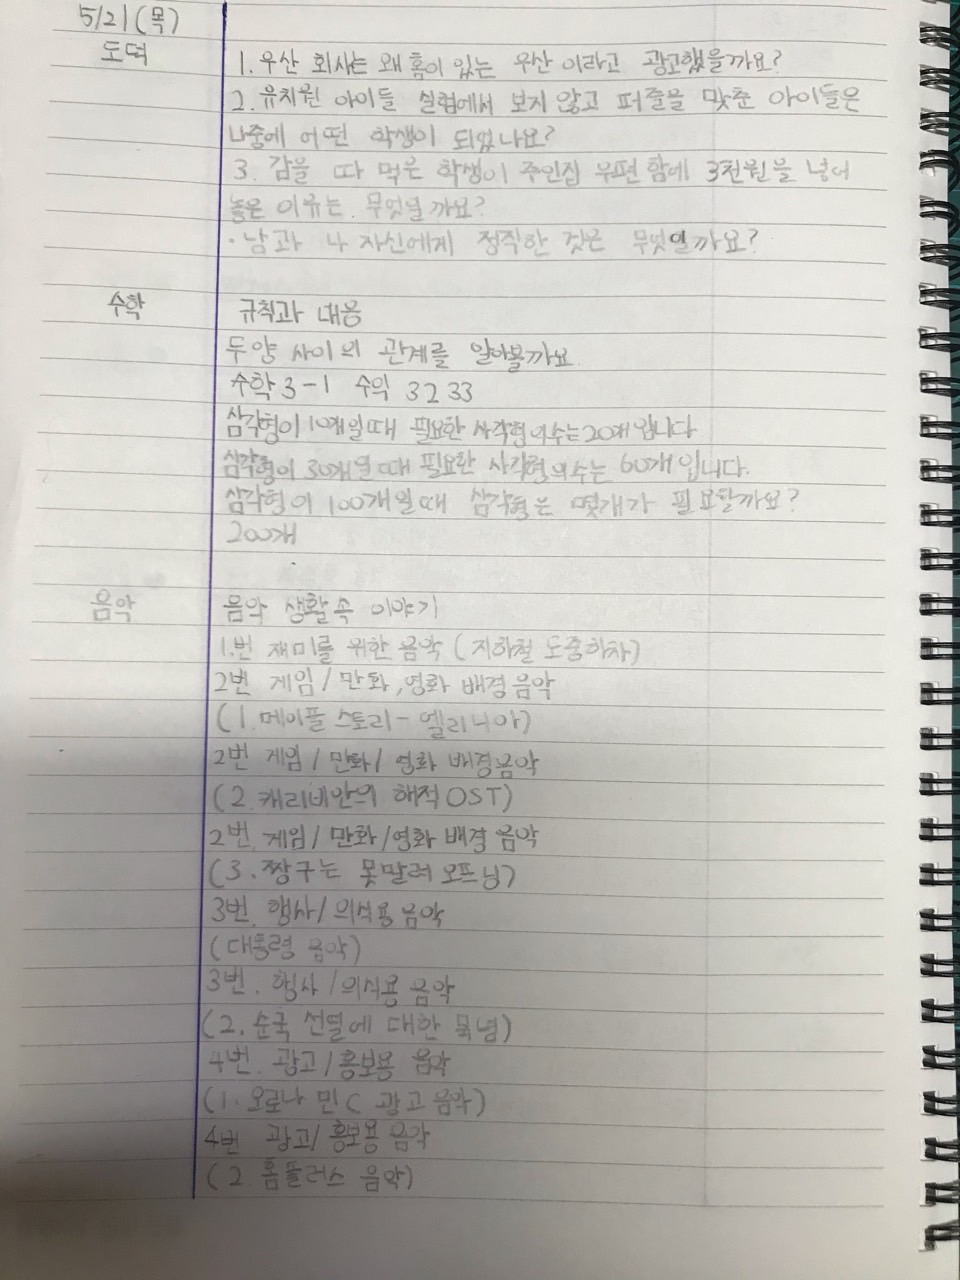 5/21(목)
도덕
1. 우산 회사는 왜 흠이 있는 우산 이라고 광고했을까요?
2. 유치원 아이들 실험에서 보지 않고 퍼즐을 맞춘 아이들은
나중에 어떤 학생이 되었나요?
3. 감을 따 먹은 학생이 주인집 우편함에 3천원을 넣어
놓은 이유는. 무엇일까요?
· 남과 나 자신에게 정직한 것은 무엇일까요?
수학
규칙과 대응
두양 사이의 관계를 알아볼까요
수학3-1 수익 32 33
삼각형이 10개일때 필요한 사각형의수는20개입니다
삼각형이 30개일때 필요한 사각형의수는 60개입니다.
삼각형이 100개일때 삼각형은 몇개가 필요할까요?
200개
음악
음악 생활속 이야기
1.번 재미를 위한 음악 (지하철 도중하차)
2번 게임/만화,영화 배경음악
(1.메이플스토리-엘리니아)
2번 게임/만화/영화 배경음악
(2.캐리비안의 해적OST)
2번. 게임/만화/영화 배경 음악
(3.짱구는 못말려 오프닝)
3번. 행사/의식용 음악
(대통령 음악)
3번. 행사/의식용 음악
(2.순국 선열에 대한 묵념)
4번. 광고/홍보용 음악
(1.오로나 민C 광고 음악)
4번 광고/홍보용 음악
(2.홈플러스 음악)